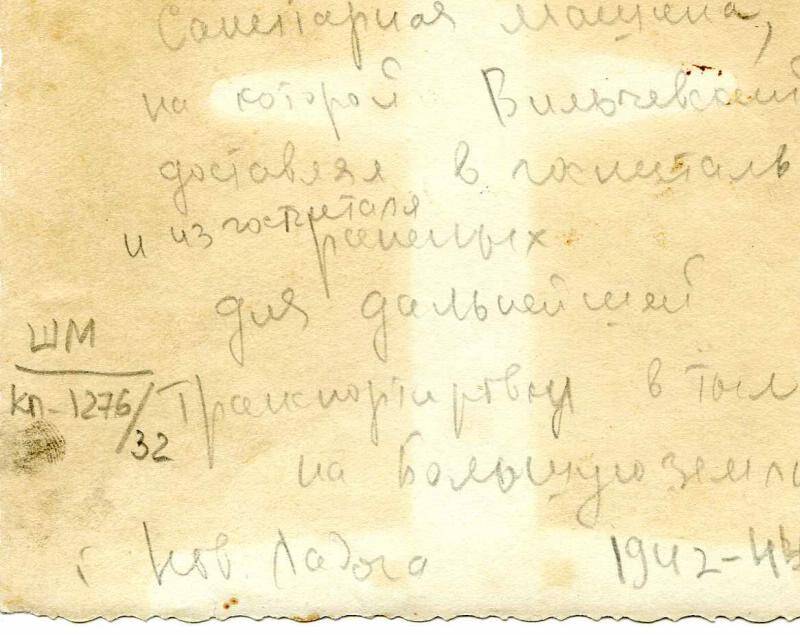 Санитарная машина,
на которой Вильчевский
доставлял в госпиталь
и из госпиталя раненых
для дальнейшей
транспортировки в тыл
на Большую землю
г. Нов. Ладога 1942-43
ШМ
КП-1276/32